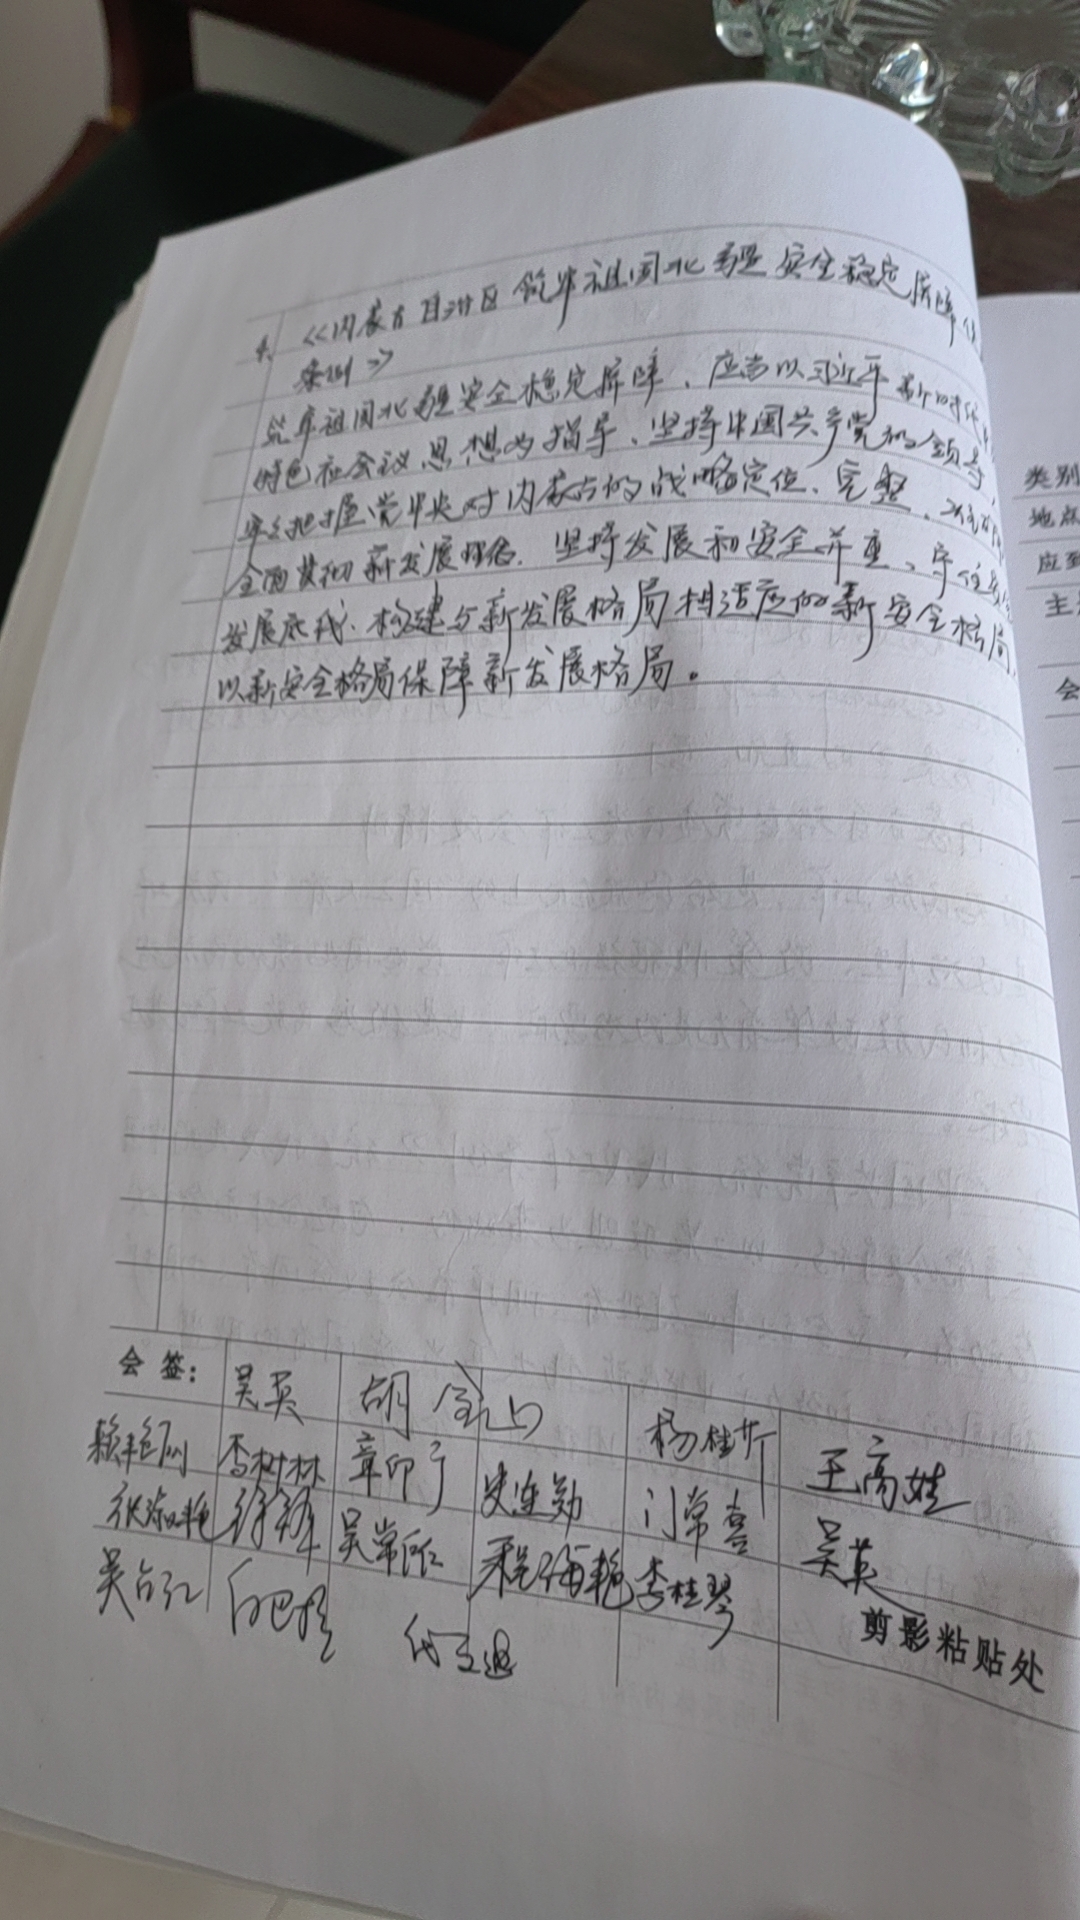 4、《内蒙古自治区筑牢祖国北疆安全稳定屏障
条例》
筑牢祖国北疆安全稳定屏障、应当以习近平新时代
特色社会议思想为指导、坚持中国共产党的领导、
牢牢把握党中央对内蒙古的战略定位、完整、准确
全面贯彻新发展理念、坚持发展和安全并重、守住安全
发展底线、构建与新发展格局相适应的新安全格局、
以新安全格局保障新发展格局。
会 签: 吴英 胡金山 杨桂芹 王高娃
李树林 章印 史连勋 门常喜 吴英
徐锋 吴常 程海艳 李桂琴
吴 白
剪影粘贴处
类别
地点
应到
主
会